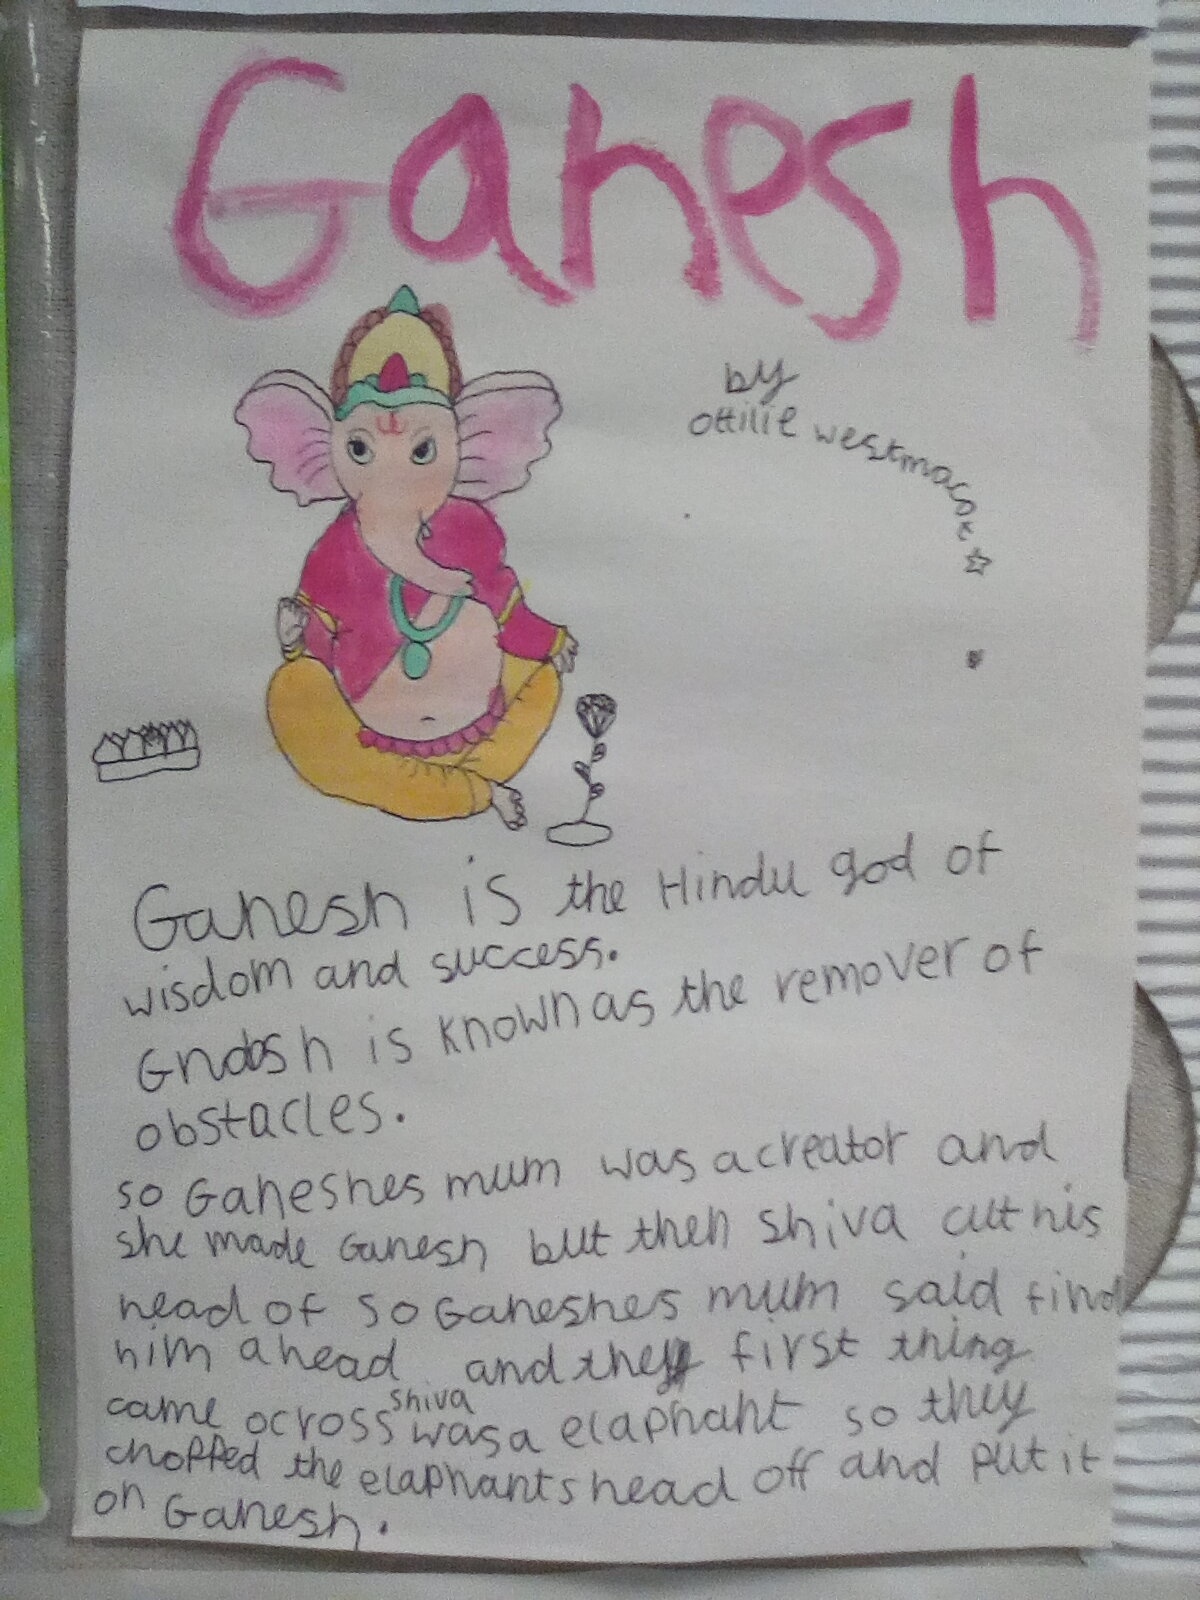 Ganesh
by
ottilie westmacot
Ganesh is the Hindu god of
wisdom and success.
is known as the remover of
obstacles.
so Ganeshes mum was a creator and
she made Ganesh but then Shiva cut his
head of so Ganeshes mum said find
him a head and the first thing
came across shiva was a elaphant so they
chopped the elaphants head off and put it
on Ganesh.